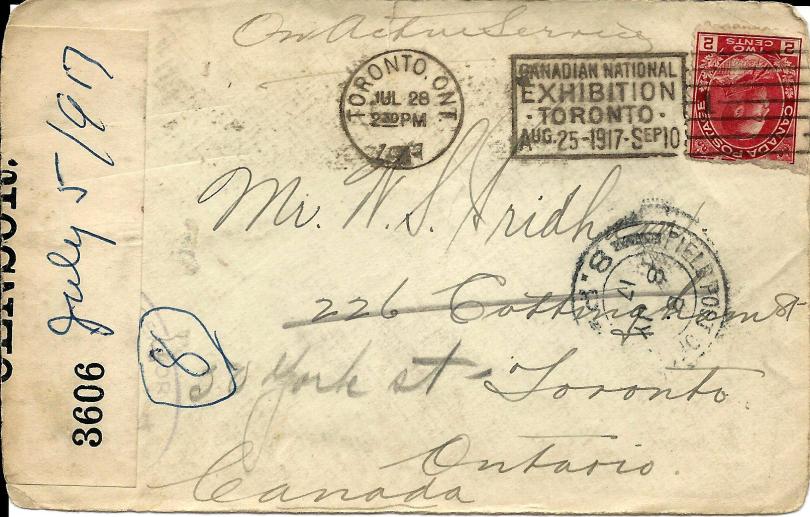 On Active Service
TORONTO, ONT
JUL 28
2 30 PM
CANADIAN NATIONAL
EXHIBITION
· TORONTO ·
AUG. 25-1917-SEP 10
2 TWO CENTS 2
CANADA POSTAGE
CENSOR.
July 5/917
3606
8
Mr. W. S.
FIELD POST
8
17
226 Cottingham St
York st - Toronto
Ontario.
Canada